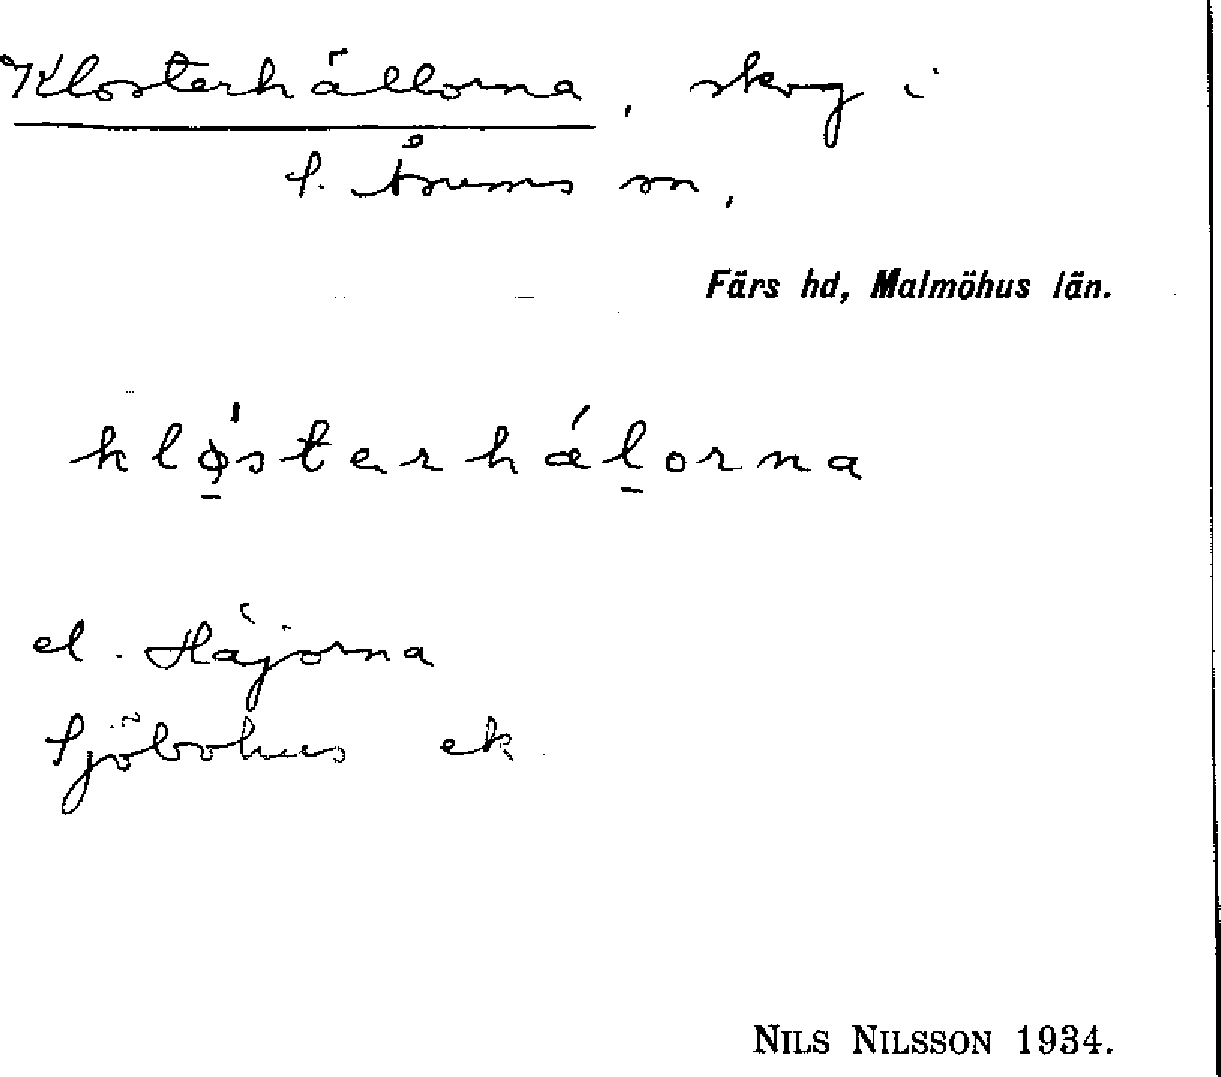 Klosterhällorna, skog i
S. Åsums sn,
Färs hd, Malmöhus län.
klǿ̱sterhǽḻorna
el. Häjorna
Sjöbohus ek
NILS NILSSON 1934.